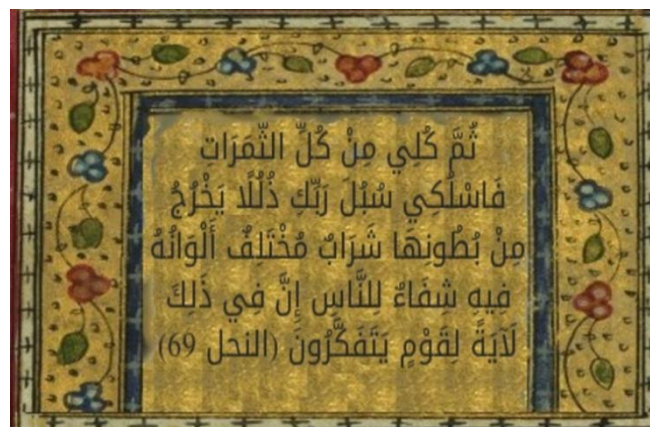 ثُمَّ كُلِي مِنْ كُلِّ الثَّمَرَاتِ
فَاسْلُكِي سُبُلَ رَبِّكِ ذُلُلًا يَخْرُجُ
مِنْ بُطُونِهَا شَرَابٌ مُخْتَلِفٌ أَلْوَانُهُ
فِيهِ شِفَاءٌ لِلنَّاسِ إِنَّ فِي ذَلِكَ
لَآيَةً لِقَوْمٍ يَتَفَكَّرُونَ (النحل 69)